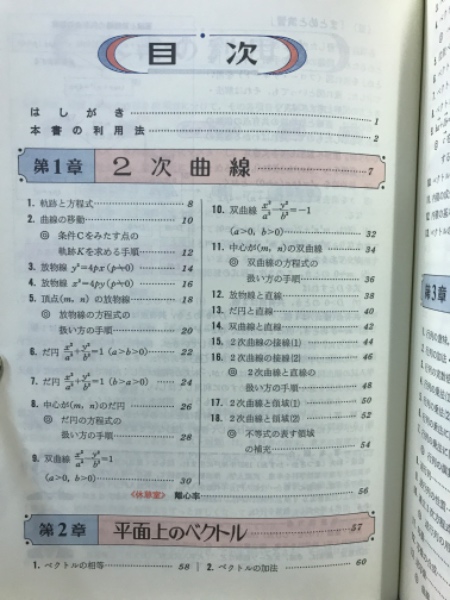 目次
はしがき 1
本書の利用法 2
第1章 2次曲線 7
1. 軌跡と方程式 8
2. 曲線の移動 10
◎ 条件Cをみたす点の
軌跡Kを求める手順 12
3. 放物線 y²=4px (p≠0) 14
4. 放物線 x²=4py (p≠0) 16
5. 頂点(m, n) の放物線 18
◎ 放物線の方程式の
扱い方の手順 20
6. だ円 x²/a²+y²/b²=1 (a>b>0) 22
7. だ円 x²/a²+y²/b²=1 (b>a>0) 24
8. 中心が(m, n)のだ円 26
◎ だ円の方程式の
扱い方の手順 28
9. 双曲線 x²/a²-y²/b²=1
(a>0, b>0) 30
10. 双曲線 x²/a²-y²/b²=-1
(a>0, b>0) 32
11. 中心が(m, n)の双曲線 34
◎ 双曲線の方程式の
扱い方の手順 36
12. 放物線と直線 38
13. だ円と直線 40
14. 双曲線と直線 42
15. 2次曲線の接線(1) 44
16. 2次曲線の接線(2) 46
◎ 2次曲線と直線の
扱い方の手順 48
17. 2次曲線と領域(1) 50
18. 2次曲線と領域(2) 52
◎ 不等式の表す領域
の補充 54
《休憩室》 離心率 56
第2章 平面上のベクトル 57
1. ベクトルの相等 58
2. ベクトルの加法 60
第3章